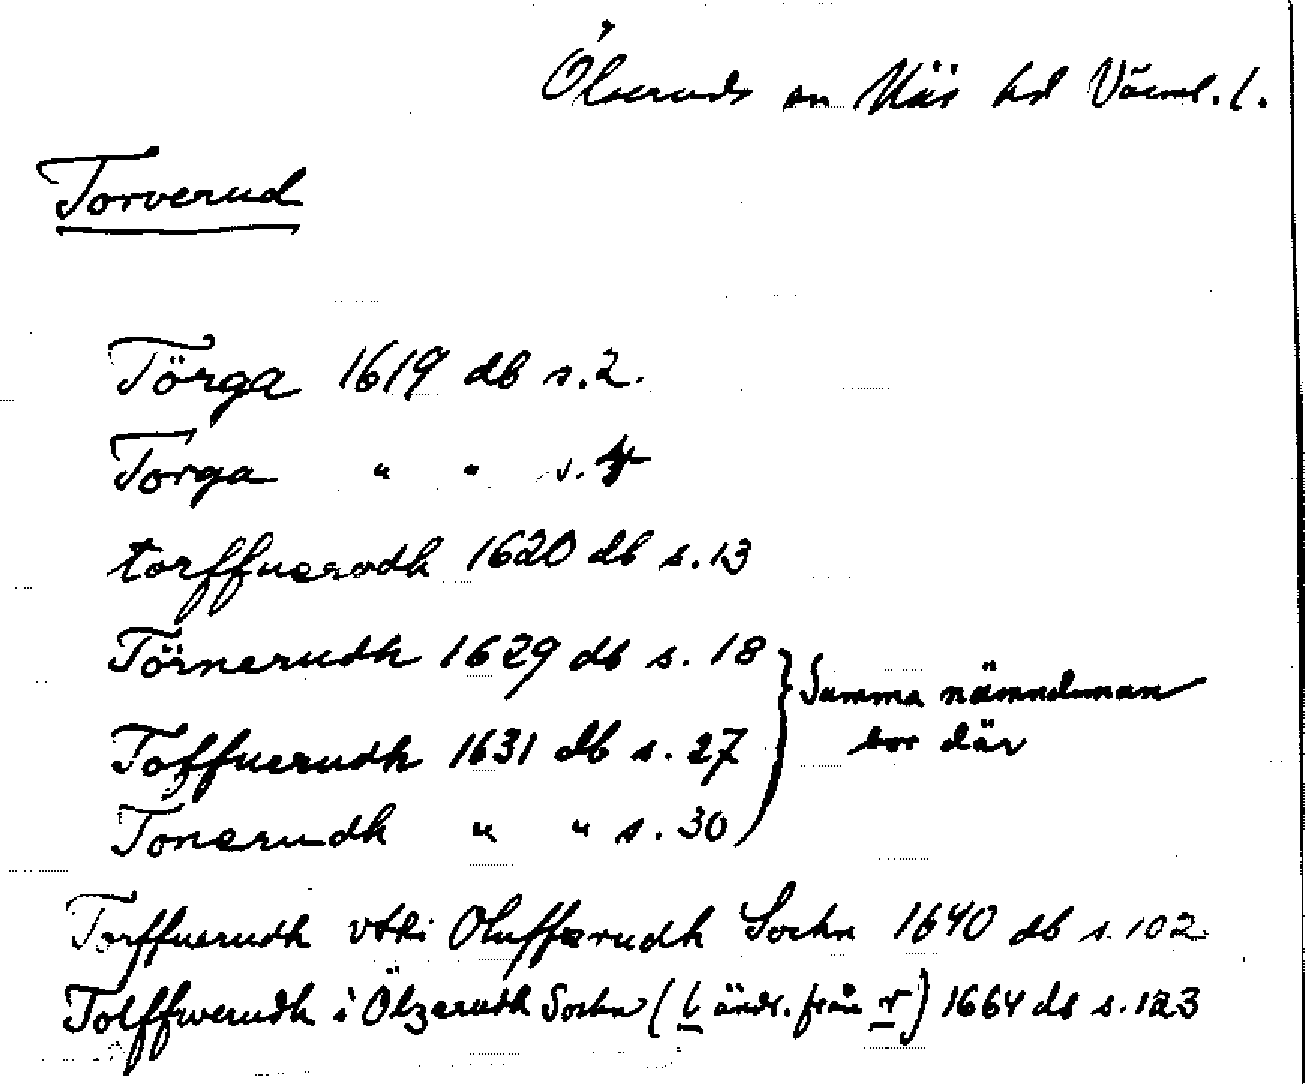 Ölseruds sn Näs hd Värml. l.
Torverud
Törga 1619 db s. 2.
Torga " " s. 4
torffuerodh 1620 db s. 13
Törnerudh 1629 db s. 18
Samma nämndeman
bor där
Toffuerudh 1631 db s. 27
Tonerudh " " s. 30
Torffuerudh vthi Oluffzrudh Sochn 1640 db s. 102
Tolffwerudh i Ölzerudh Sochn (l ändr. från r) 1664 db s. 123